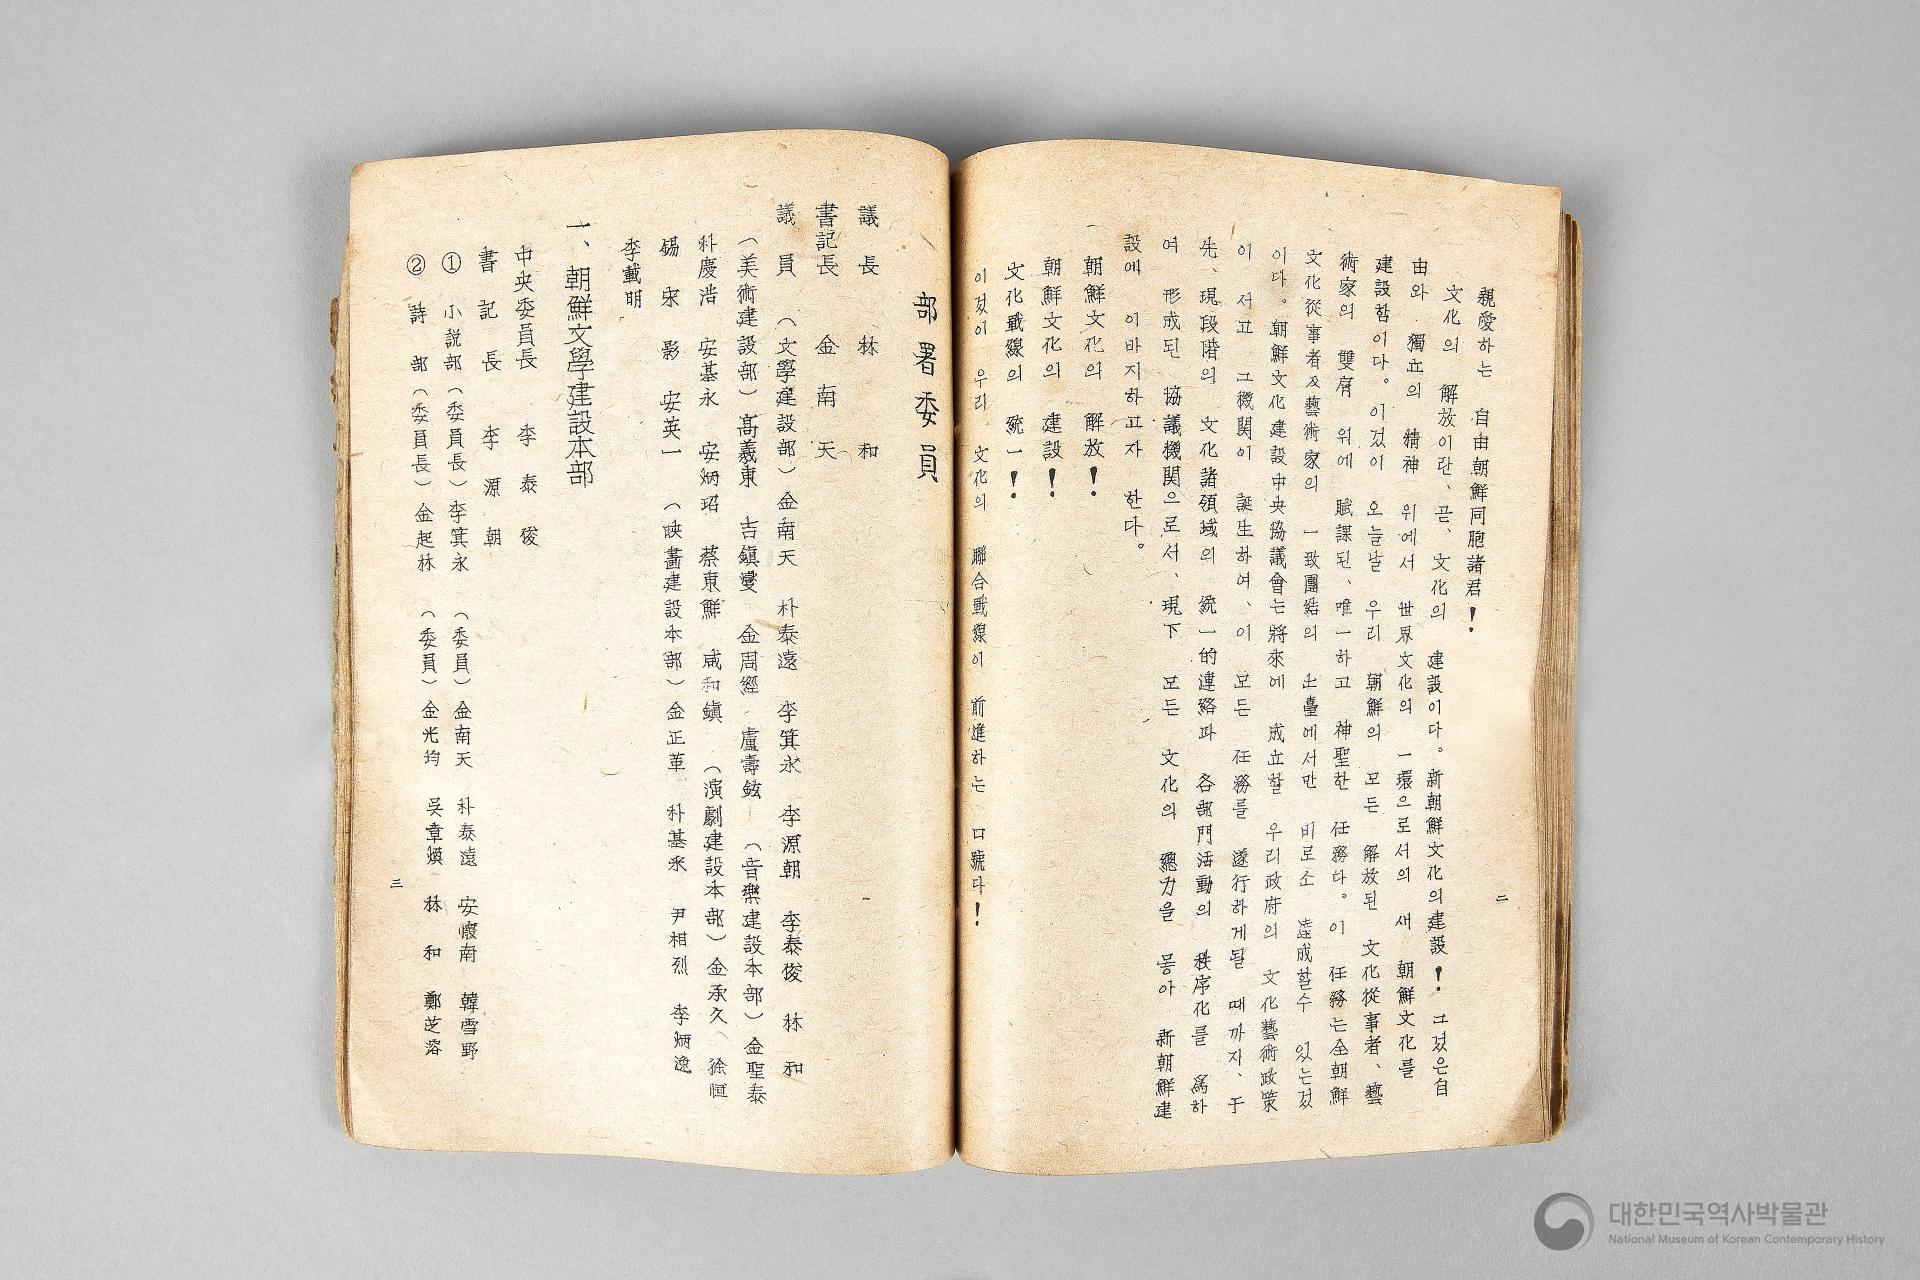 親愛하는 自由朝鮮同胞諸君!
文化의 解放이란、곧、文化의 建設이다。新朝鮮文化의建設! 그것은自
由와 獨立의 精神 위에서 世界文化의 一環으로서의 새 朝鮮文化를
建設함이다。이것이 오늘날 우리 朝鮮의 모든 解放된 文化從事者、藝
術家의 雙肩 위에 賦課된、唯一하고 神聖한 任務다。이 任務는全朝鮮
文化從事者及藝術家의 一致團結의 土臺에서만 비로소 造成할수 있는것
이다。朝鮮文化建設中央協議會는將來에 成立할 우리政府의 文化藝術政策
이 서고 그機関이 誕生하여、이 모든 任務를 遂行하게될 때까지、于
先、現段階의 文化諸領域의 統一的連絡과 各部門活動의 秩序化를 爲하
여 形成된 協議機関으로서、現下 모든 文化의 總力을 몽아 新朝鮮建
設에 이바지하고자 한다。
朝鮮文化의 解放!
朝鮮文化의 建設!
文化戰線의 統一!
이것이 우리 文化의 聯合戰線이 前進하는 口號다!
二
部署委員
議長 林和
書記長 金南天
議員 (文學建設部) 金南天 朴泰遠 李箕永 李源朝 李泰俊 林和
(美術建設部) 高羲東 吉鎭燮 金周經 盧壽鉉 (音樂建設本部) 金聖泰
朴慶浩 安基永 安炳昭 蔡東鮮 咸和鎭 (演劇建設本部) 金承久 徐恒
錫 宋影 安英一 (映畵建設本部) 金正革 朴基采 尹相烈 李炳逸
李載明
一、朝鮮文學建設本部
中央委員長 李泰俊
書記長 李源朝
① 小說部 (委員長) 李箕永 (委員) 金南天 朴泰遠 安懷南 韓雪野
② 詩部 (委員長) 金起林 (委員) 金光均 吳章煥 林和 鄭芝溶
三
대한민국역사박물관
National Museum of Korean Contemporary History